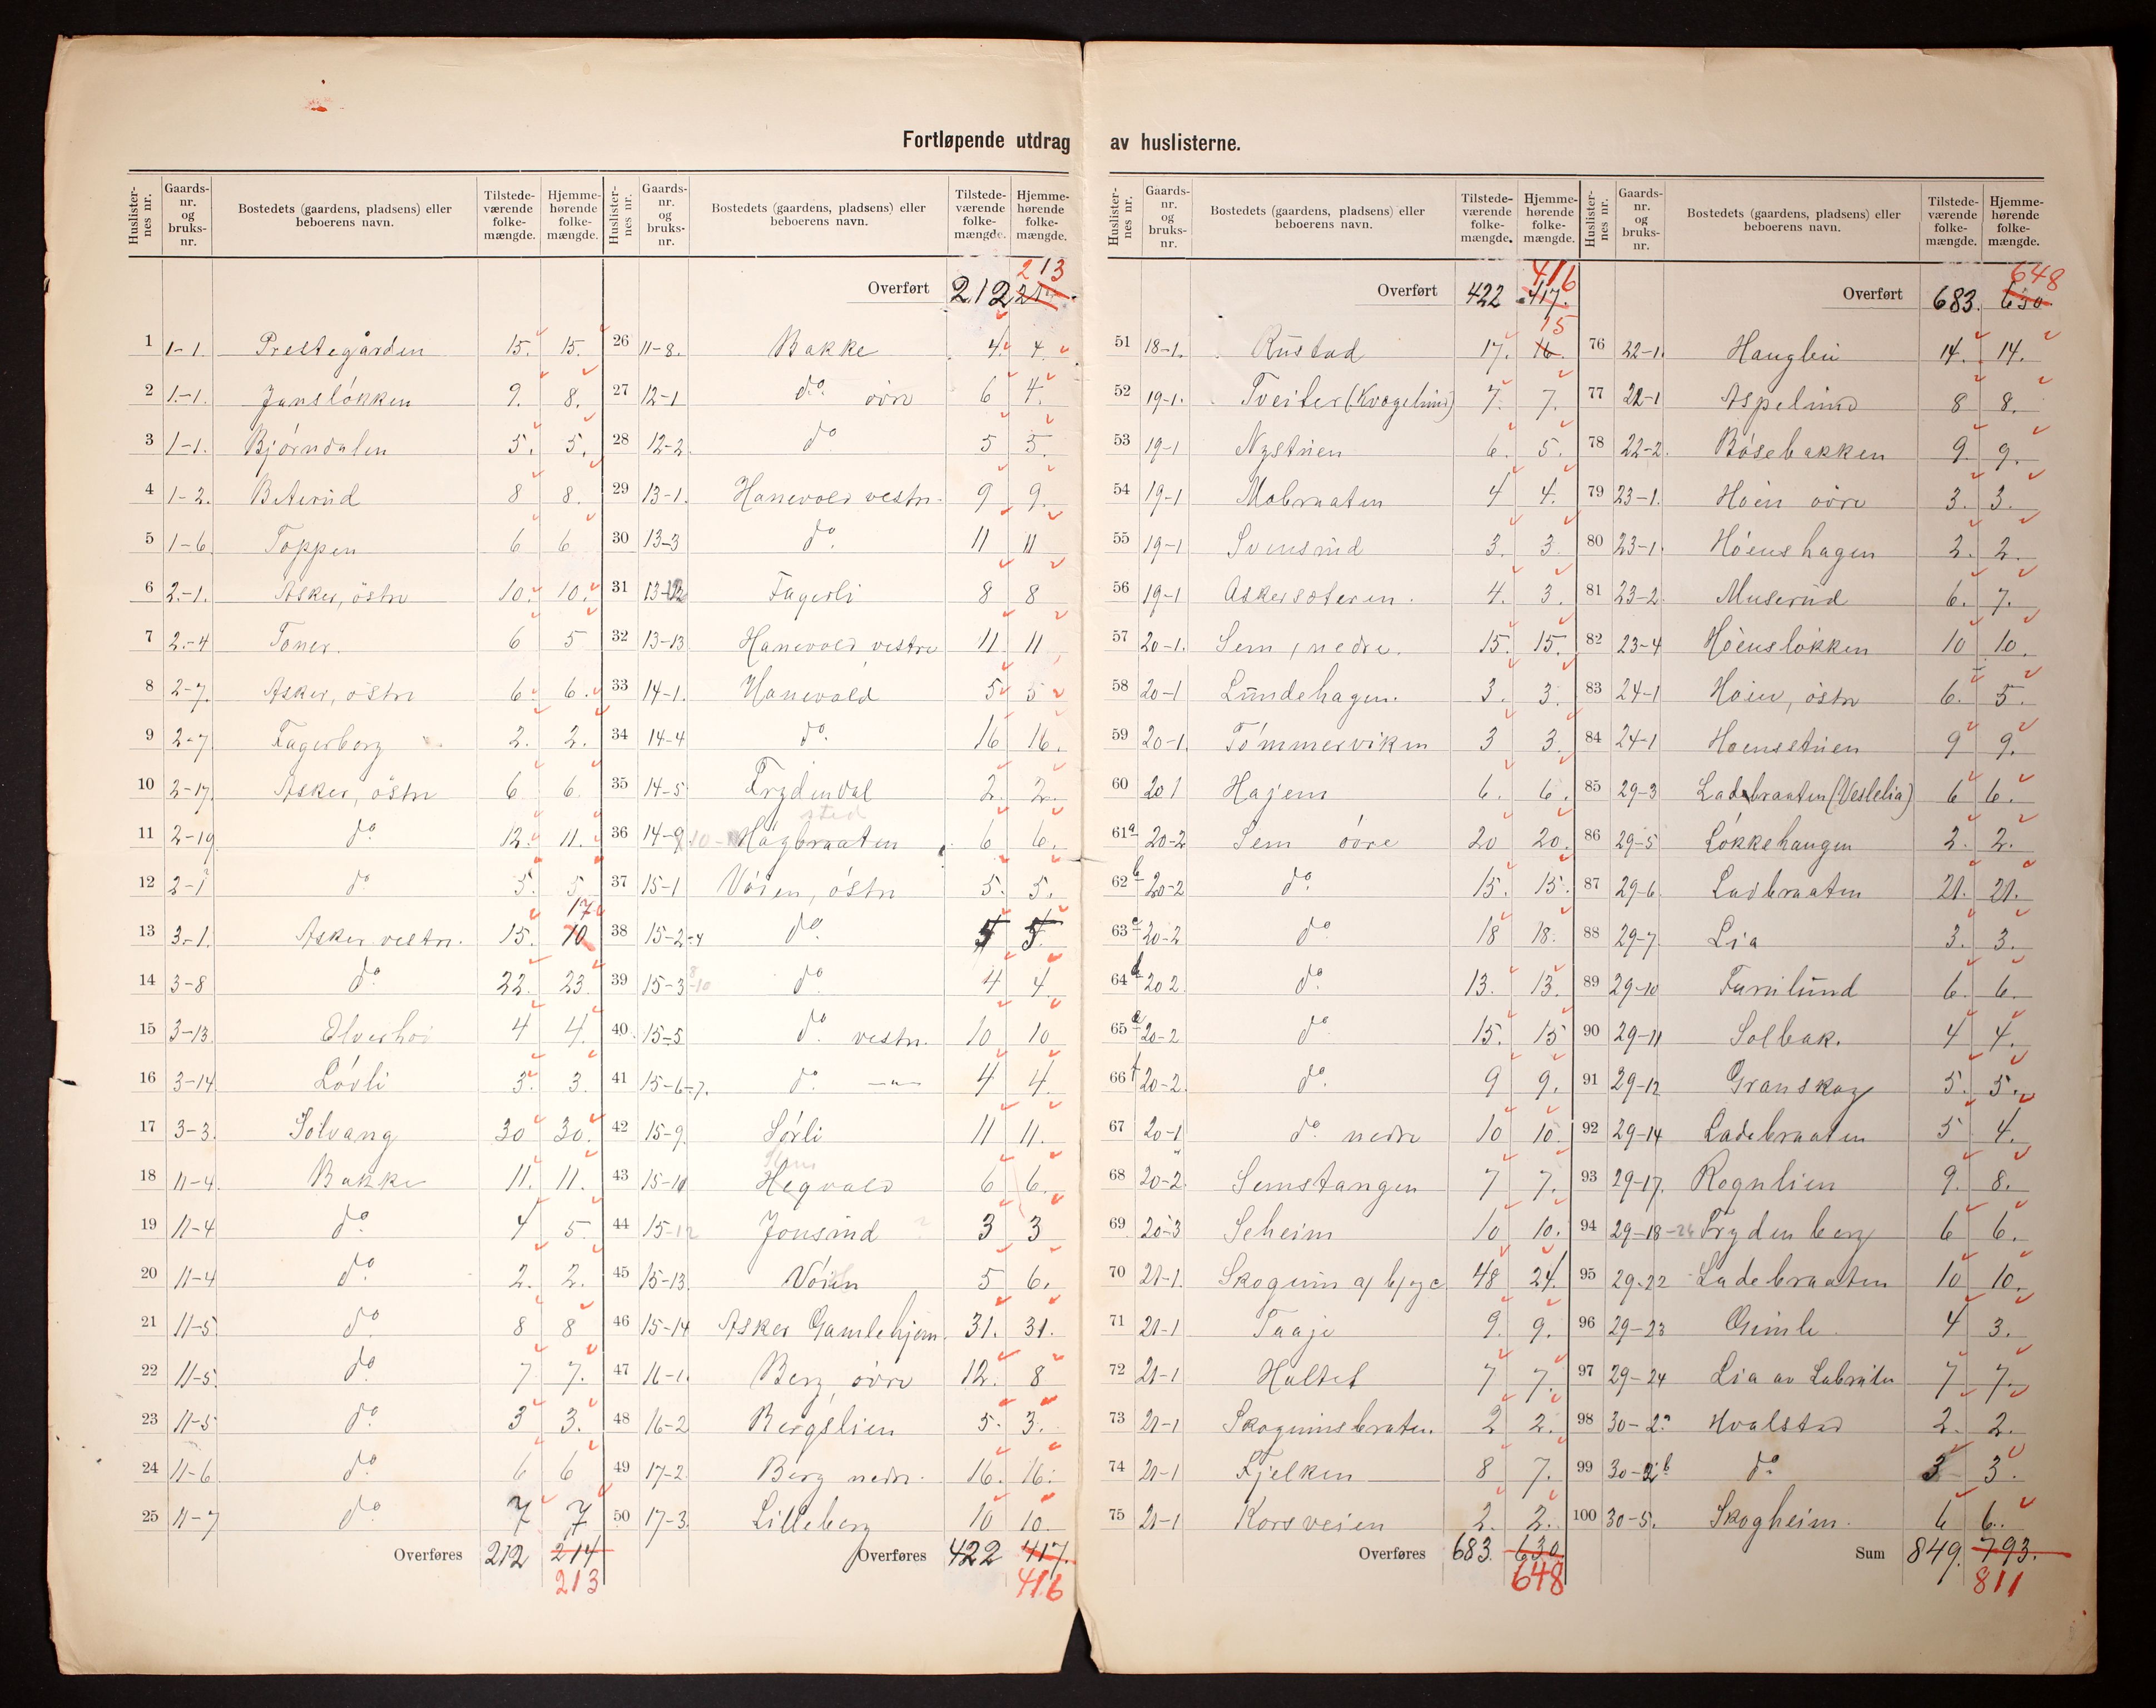 Fortløpende utdrag av huslisterne.
Huslister-nes nr. Gaards-nr. og bruks-nr. Bostedets (gaardens, pladsens) eller beboerens navn. Tilstede-værende folke-mængde. Hjemme-hørende folke-mængde.
1 1-1. Prestegården 15. 15.
2 1-1. Jansløkken 9. 8.
3 1-1. Bjørndalen 5. 5.
4 1-2. Biterud 8 8.
5 1-6. Toppen 6 6
6 2-1. Asker, östre 10. 10.
7 2-4 Toner. 6 5
8 2-7. Asker, östre 6. 6.
9 2-7 Fagerborg 2. 2.
10 2-17 Asker, östre 6 6.
11 2-19 do 12. 11.
12 2-1 do 5. 5.
13 3-1. Asker vestre. 15. 10 17
14 3-8 do 22. 23.
15 3-13 Elverhöi 4 4.
16 3-14 Lövli 3. 3.
17 3-3 Solvang 30 30.
18 11-4. Bakke 11. 11.
19 11-4 do 4 5.
20 11-4 do 2. 2.
21 11-5 do 8 8
22 11-5. do 7 7.
23 11-5 do 3 3.
24 11-6 do 6 6
25 11-7 do 7 7
Overføres 212 214
213
Huslister-nes nr. Gaards-nr. og bruks-nr. Bostedets (gaardens, pladsens) eller beboerens navn. Tilstede-værende folke-mængde. Hjemme-hørende folke-mængde.
213
Overført 212
26 11-8. Bakke 4. 4.
27 12-1 do. övre 6 4.
28 12-2 do 5 5.
29 13-1. Hanevold vestre. 9 9.
30 13-3 do. 11 11
31 Fagerli 8 8
32 13-13 Hanevold vestre 11. 11
33 14-1. Hanevold 5 5
34 14-4 do. 16 16.
35 14-5 Frydendal 2. 2.
sted
36 14-9 10 Högbraaten 6 6.
37 15-1 Vöien, östre 5. 5.
38 15-2-4 do.
39 15-3 8 10 do. 4 4
40 15-5 do vestre. 10 10
41 15-6-7. do. -"- 4 4.
42 15-9 Sörli 11 11.
43 15-10 Hegvold 6 6.
44 15-12 Jonsrud 3 3
45 15-13. Vöien 5 6.
46 15-14 Asker Gamlehjem 31. 31.
47 16-1. Berg, övre 12. 8
48 16-2 Bergslien 5. 3.
49 17-2. Berg nedre. 16. 16.
50 17-3. Lilleberg 10 10.
Overføres 422 417.
416
Huslister-nes nr. Gaards-nr. og bruks-nr. Bostedets (gaardens, pladsens) eller beboerens navn. Tilstede-værende folke-mængde. Hjemme-hørende folke-mængde.
416
Overført 422 417.
15
51 18-1. Rustad 17. 16.
52 19-1. Tveiter (Kvagelund) 7. 7.
53 19-1 Nystuen 6. 5.
54 19-1 Mobraaten 4 4.
55 19-1 Svensrud 3. 3
56 19-1 Askersæteren. 4. 3.
57 20-1. Sem, nedre. 15. 15.
58 20-1 Lundehagen. 3. 3.
59 20-1. Tömmerviken 3 3.
60 20 1 Hajem 6. 6.
61 a 20-2 Sem övre 20 20.
62 b 20-2 do. 15. 15.
63 c 20-2 do 18 18.
64 d 20 2. do. 13. 13.
65 e 20-2 do 15. 15
66 f 20-2. do. 9 9.
67 20-1 do nedre 10 10.
68 20-2. Semstangen 7 7.
69 20-3 Seheim 10 10.
70 21-1. Skogum a/ b/ og c 48 24.
71 21-1 Taaje 9. 9.
72 21-1 Hultet 7 7.
73 21-1 Skogumsbraten. 2 2.
74 21-1 Fjelken 8 7.
75 21-1 Korsveien 2. 2.
Overføres 683. 630
648
Huslister-nes nr. Gaards-nr. og bruks-nr. Bostedets (gaardens, pladsens) eller beboerens navn. Tilstede-værende folke-mængde. Hjemme-hørende folke-mængde.
648
Overført 683. 630
76 22-1. Hauglie 14. 14.
77 22-1 Aspelund 8 8.
78 22-2. Bösebakken 9. 9.
79 23-1. Höen övre 3. 3.
80 23-1. Höenshagen 2. 2.
81 23-2. Muserud 6. 7.
82 23-4 Höenslökken 10 10.
83 24-1 Höien, östre 6. 5.
84 24-1 Hoensstuen 9 9.
85 29-3 Ladebraaten (Veslelia) 6 6.
86 29-5 Løkkehaugen 2. 2.
87 29-6. Ladbraaten 21. 21.
88 29-7. Lia 3. 3.
89 29-10 Furulund 6. 6.
90 29-11 Solbak. 4 4.
91 29-12 Granskog 5. 5.
92 29-14 Ladebraaten 5 4.
93 29-17. Rognlien 9. 8.
94 29-18-26 Frydenberg 6 6.
95 29-22 Ladebraaten 10 10.
96 29-23 Gimle. 4 3.
97 29-24 Lia av 7 7.
98 30-2 a Hvalstad 2. 2.
99 30-2 b do 3 3.
100 30-5. Skogheim. 6 6.
Sum 849. 793.
811